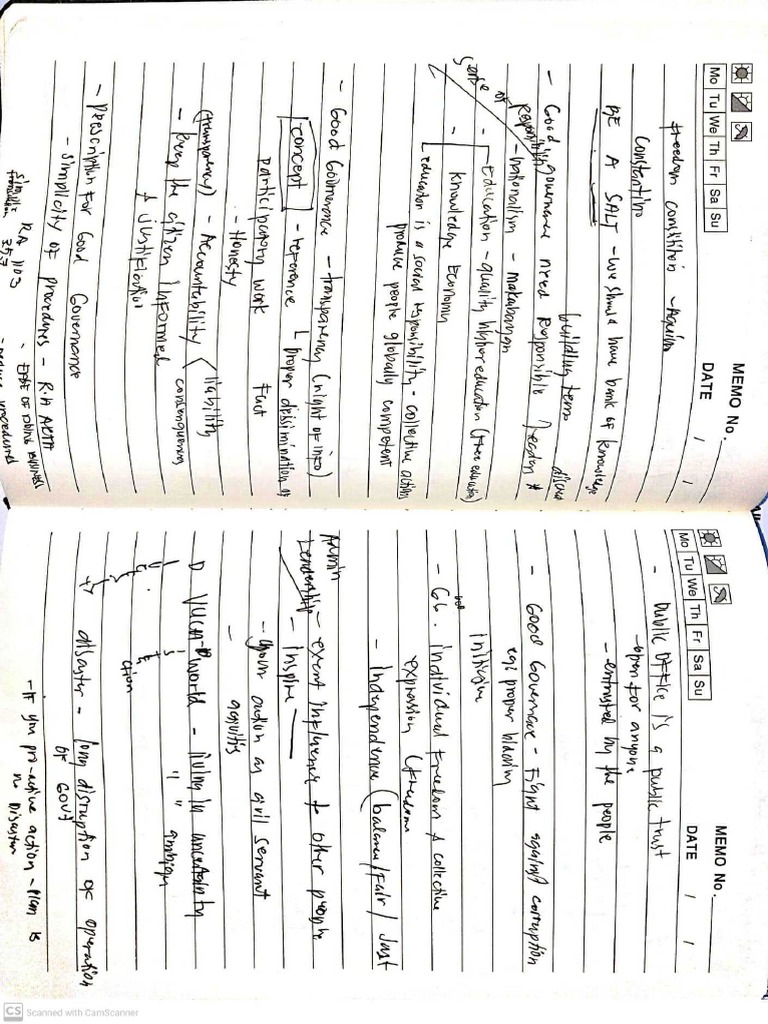 MEMO No.
DATE / /
Mo Tu We Th Fr Sa Su
freedom constitution - Aquino
Constantino
BE A SALT - we should have bank of knowledge
building term
- Good governance need Responsible
Sense of Responsibility
- nationalism - makabayan
- Education - quality higher education (
- Knowledge Economy
Education is a social responsibility - collective action
produce people globally competent
- Good Governance - transparency (right of info)
concept - reference
proper dissimination of
participatory work Fact
- Honesty
(transparency) - Accountability < liability
consequences
- keep the citizen informed
& Justification
- prescription for Good Governance
- Simplicity of procedures - RA
RA 1103
- EASE OF DOING BUSINESS
MEMO No.
DATE / /
Mo Tu We Th Fr Sa Su
- Public Office is a public trust
- open for anyone
- entrusted by the people
- Good Governance - Fight against corruption
eg: proper bidding
- GG. individual freedom & collective
expression (freedom
- Independence (balance/Fair/Just
Admin
Leadership - exert influence to other people
- Inspire
- your action as civil servant
-
VUCA world - living in uncertainty
" " ambign
disaster - long disruption of operation
of GOVT
- If you pro-active action - plan is
no Disaster
CS Scanned with CamScanner